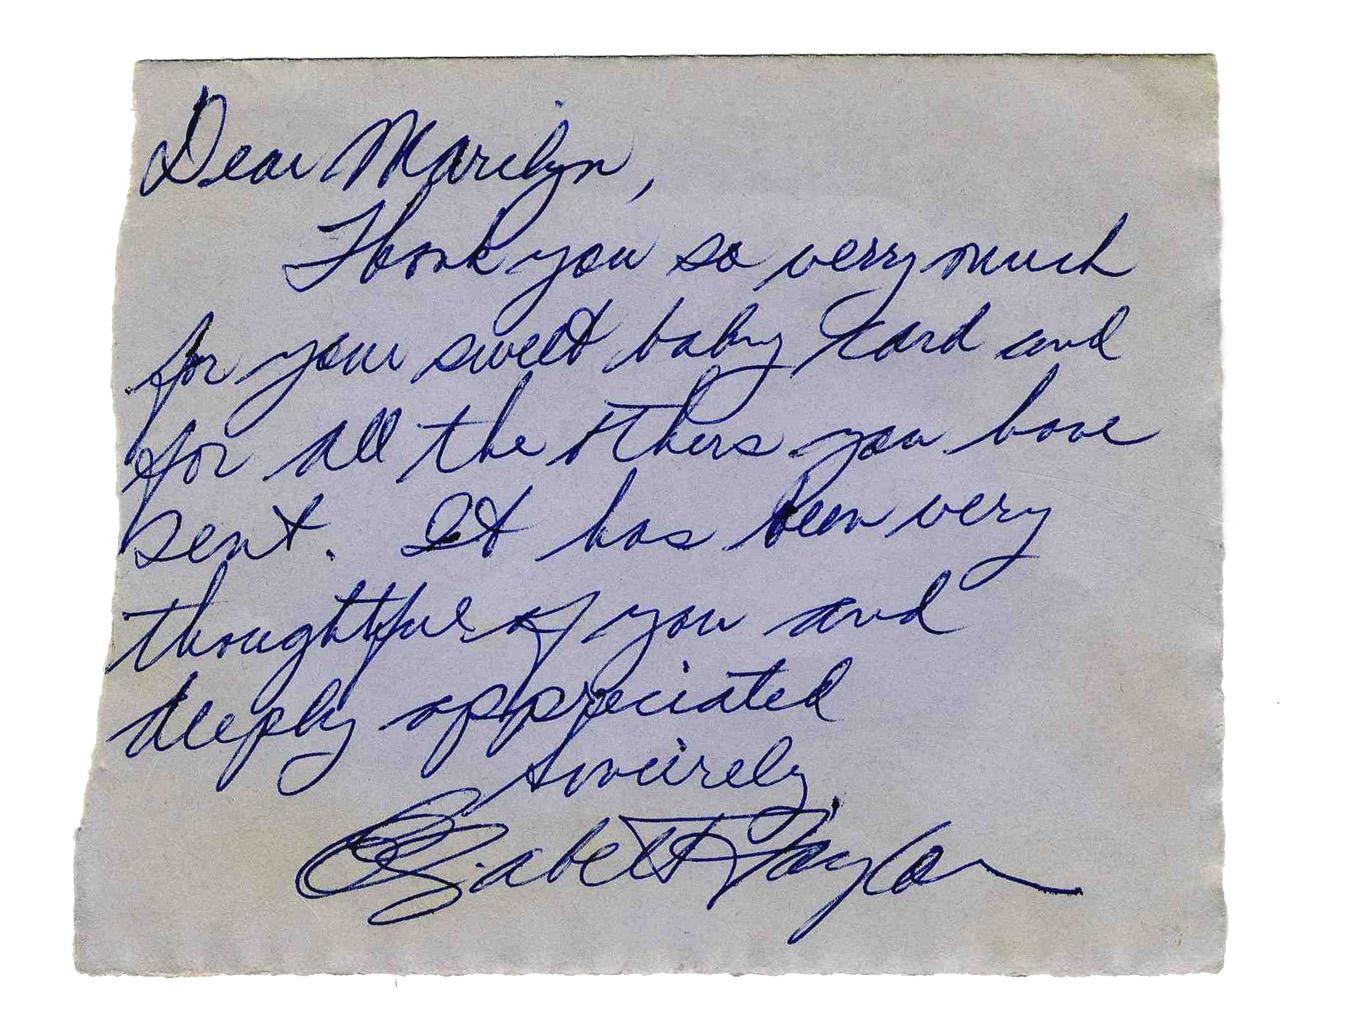 Dear Marilyn,
Thank you so very much
for your sweet baby card and
for all the others you have
sent. It has been very
thoughtful of you and
deeply appreciated
Sincerely,
Elizabeth Taylor